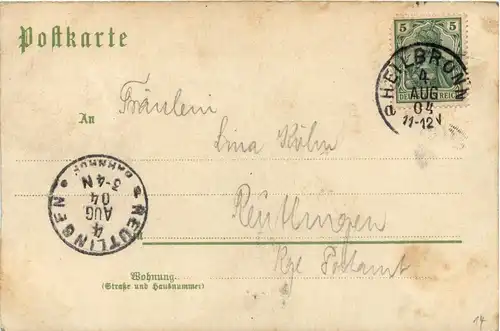 Postkarte
5 5
DEUTSCHES REICH
HEILBRONN
4.
AUG
04
11-12V
a
An
Fräulein
Lina Köhn
Reutlingen
Kgl Postamt
REUTLINGEN
BAHNHOF
4
AUG
04
3-4N
Wohnung
(Straße und Hausnummer)
14